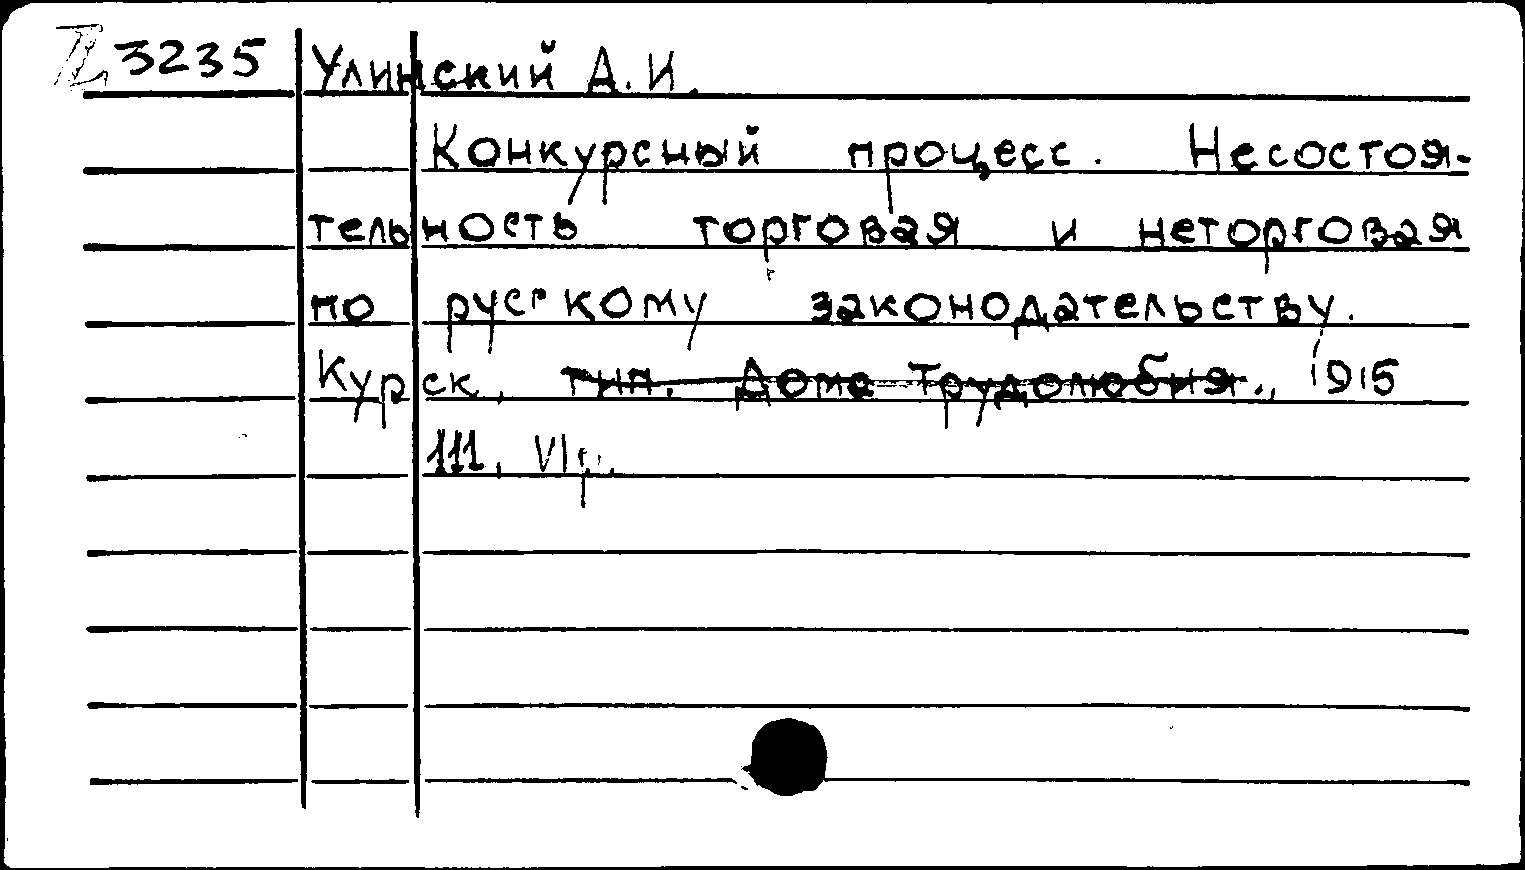 3235 Улинский А. И.
Конкурсный процесс. Несостоя-
тельность торговая и неторговая
по русскому законодательству.
Курск, тип. Дома Трудолюбия., 1915
111, VI